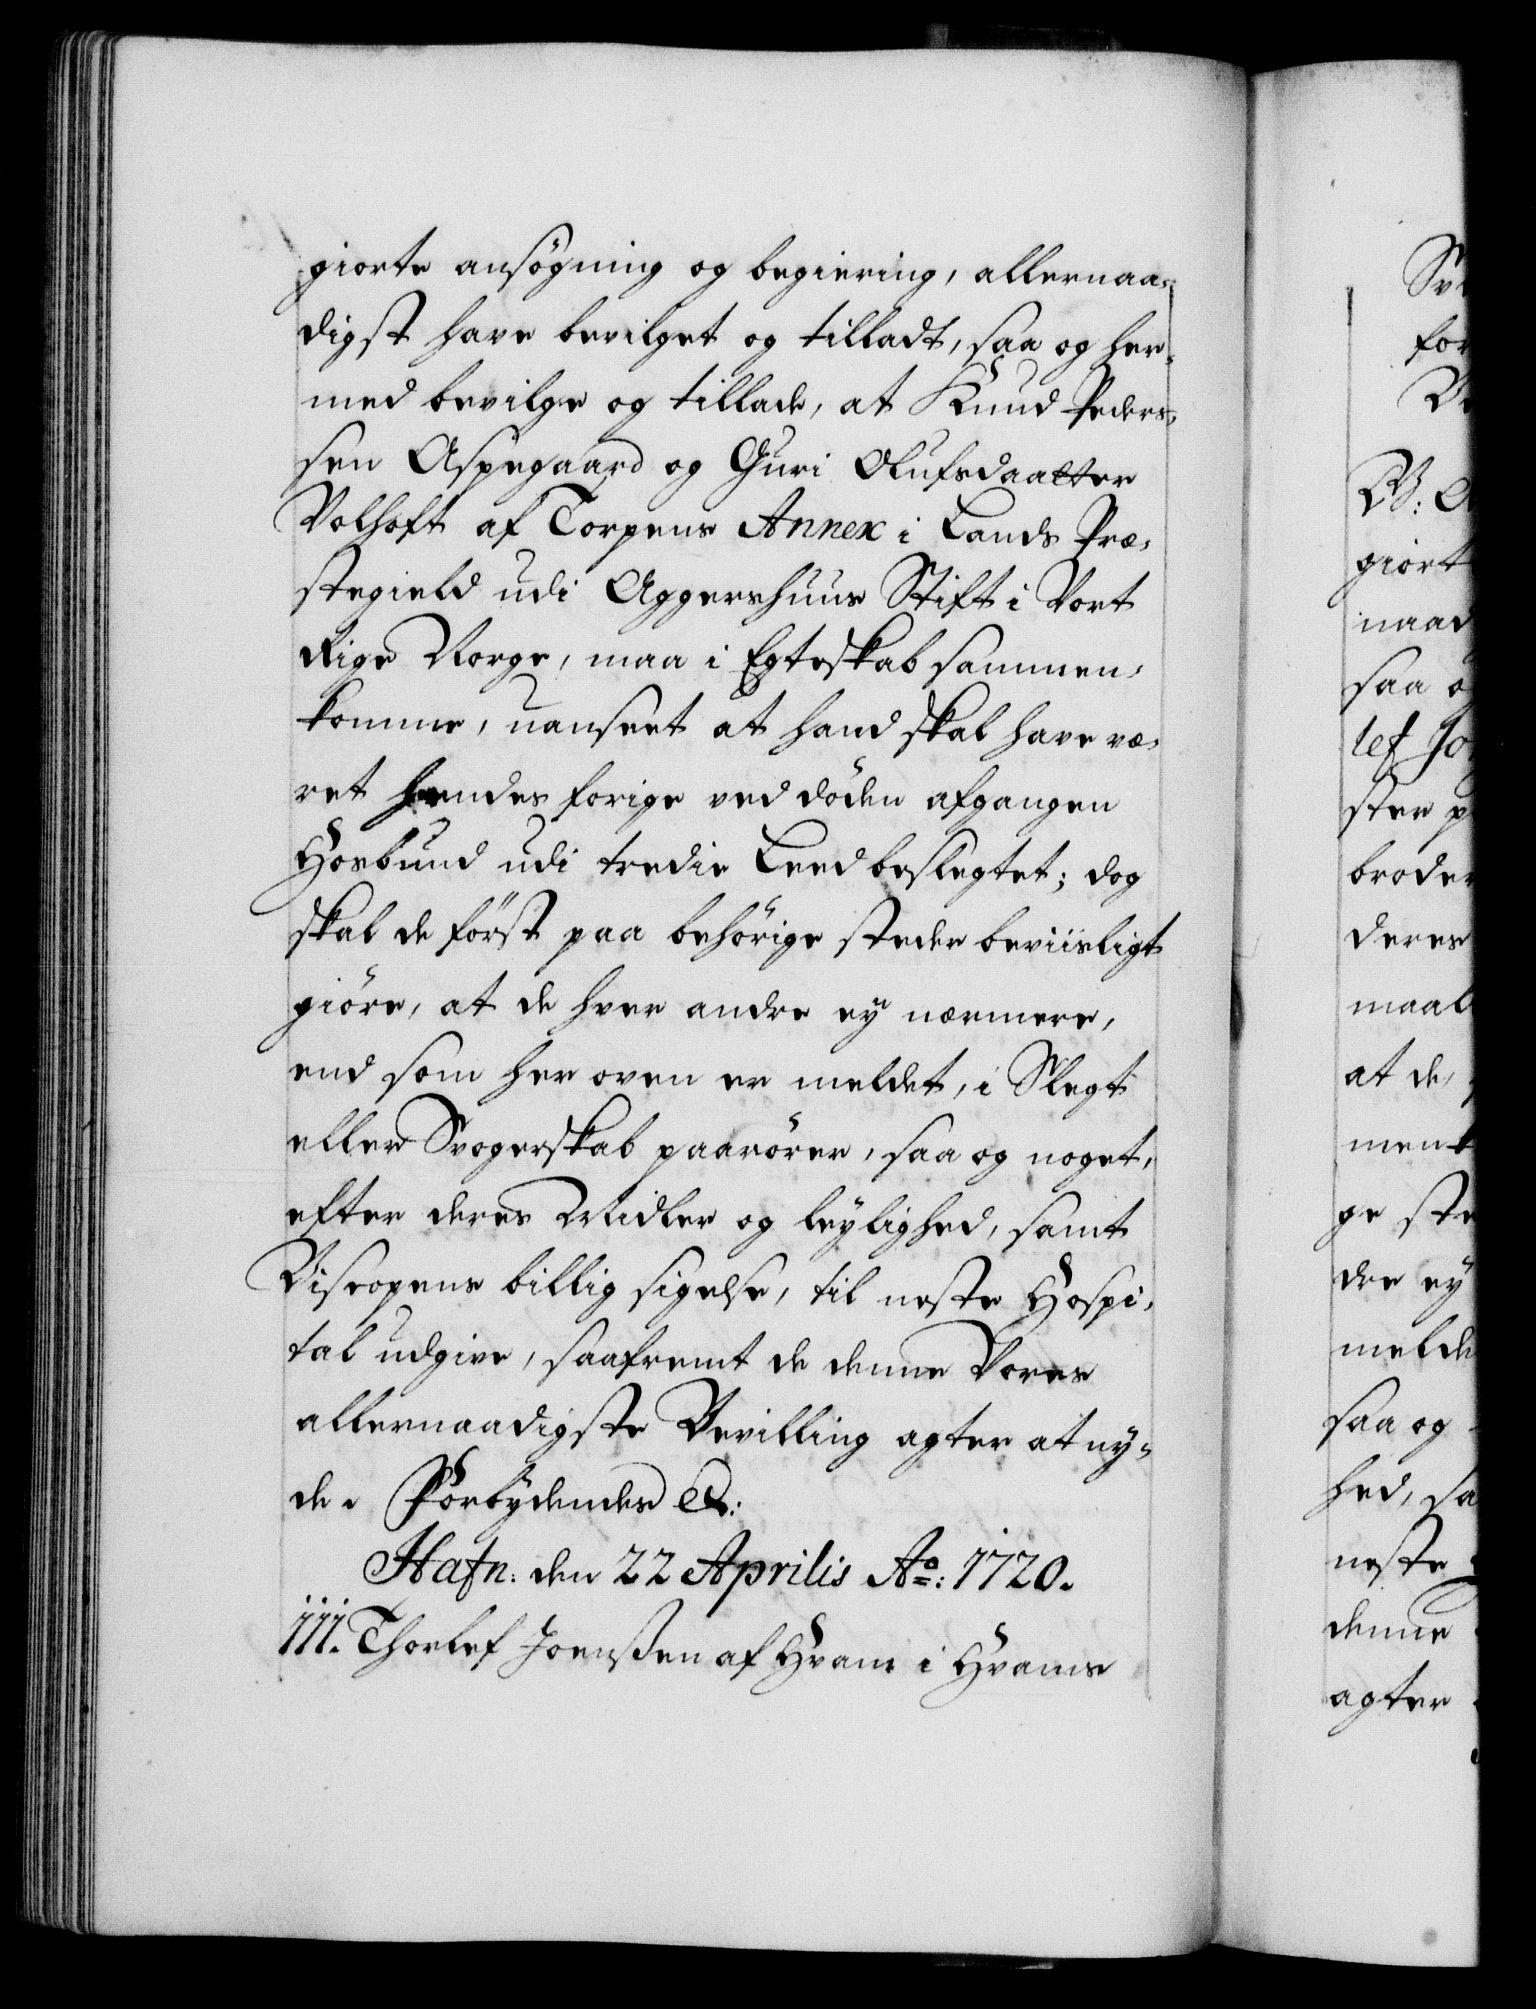 giorte ansøgning og begiering, allernaa-
digst have bevilget og tilladt, saa og her-
med bevilge og tillade, at Knud Peders-
sen Aspegaard og Guri Olufsdaatter
Volhoft af Torpens Annex i Lands Præ-
stegield udi Aggershuus Stift i Vort
Rige Norge, maa i Egteskab sammen-
komme, uanseet at hand skal have væ-
ret hendes forige ved døden afgangen
Hosbund udi tredie Leed beslegtet; dog
skal de først paa behørige steder beviisligt
giøre, at de hver andre ey nærmere,
end som her oven er meldet, i Slegt
eller Svogerskab paarører, saa og noget,
efter deres Midler og leylighed, samt
Biscopens billig sigelse, til neste Hospi-
tal udgive, saafremt de denne Vores
allernaadigste Bevilling agter at ny-
de. Forbydendes &:
Hafn: den 22 Aprilis Ao: 1720.
111. Thorlef Joenssen af Hvam i Hvams
for
giort
naad
saa o
lef Jo
ster p
broder
deres
maal
at de,
ment
ge ste
dre ey
melde
saa og
hed, sa
neste
denne
agter